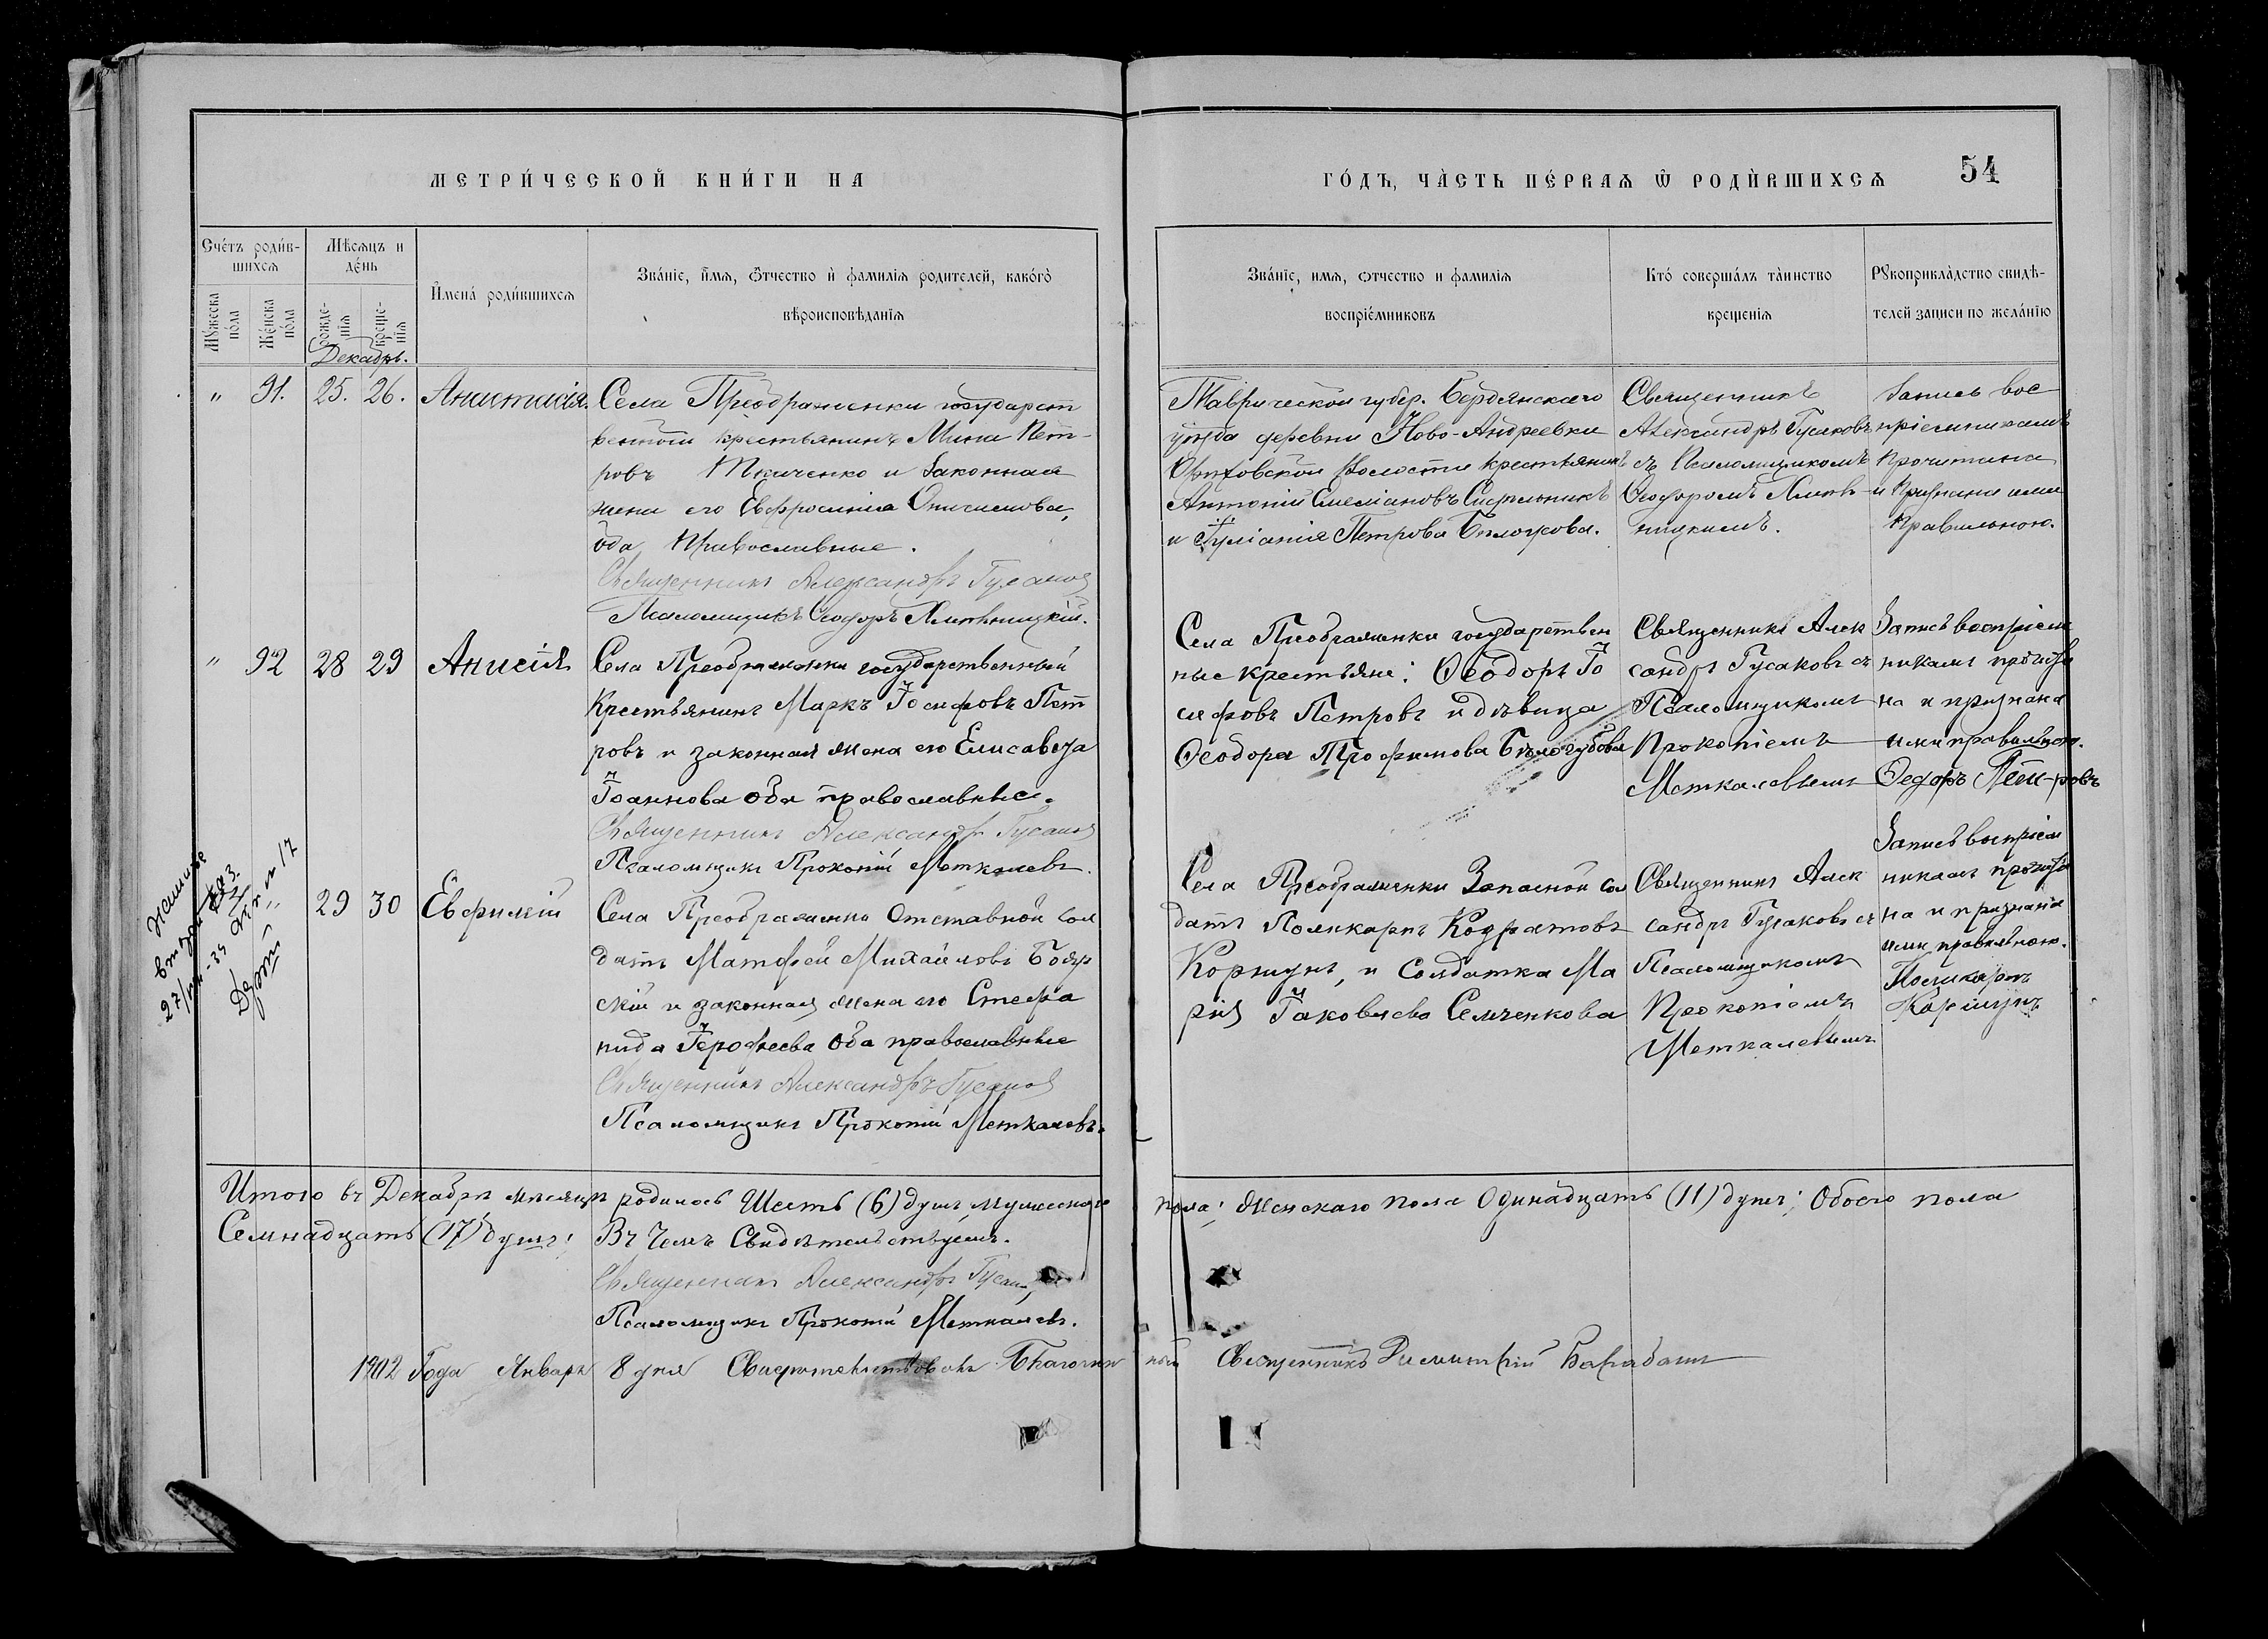 МЕТРИ́ЧЕСКОЙ КНИ́ГИ НА
ГО́ДЪ, ЧА̀СТЬ ПЕ́РВАѦ Ѿ РОДЍВШИХСѦ
54
Сче́тъ роди́в-
шихсѧ
Мѣсѧцъ и
де́нь
Мꙋ́жеска
по́ла
Же́нска
по́ла
рожде-
нїѧ
креще-
нїѧ
Имена́ роди́вшихсѧ
Зва́нїе, и́мѧ, ѻтчество и҆ фамилїѧ родителей, како́гѡ
вѣроисповѣданїѧ
Зва́нїе, имѧ, ѻтчество и фамилїѧ
воспрїе́мниковъ
Кто́ совершалъ та̀инство
крещенїѧ
Рꙋкоприкла̀дство свидѣ-
телей записи по жела́нїю
Декабрь.
" 91. 25. 26. Анастасія.
Села Преображенки государст
венный крестьянинъ Мина Пет-
ровъ Ткаченко и законная
жена его Евфросинія Онисимова,
оба православные.
Священникъ Александръ Гусаковъ
Псаломщикъ Ѳеодоръ
Таврической губер. Бердянскаго
уѣзда деревни Ново-Андреевки
волости крестьянинъ
Антоній Емеліановъ
и Іуліанія Петрова
Священникъ
Александръ Гусаковъ
съ Псаломщикомъ
Ѳеодоромъ
Запись вос
пріемникамъ
прочитана
и признана ими
правильною.
" 92 28 29 Анисія
Села Преображенки государственный
Крестьянинъ Маркъ Іосифовъ Пет
ровъ и законная жена его Елисавета
Іоаннова оба православные.
Священникъ Александръ Гусаковъ
Псаломщикъ Прокопій Меткалевъ.
Села Преображенки государствен
ные крестьяне: Ѳеодоръ Іо
сифовъ Петровъ и дѣвица
Ѳеодора Трофимова Бѣлогубова
Священникъ Алек
сандръ Гусаковъ съ
Псаломщикомъ
Прокопіемъ
Меткалевымъ
Запись воспріем
никамъ прочита
на и признана
ими правильною.
Ѳедоръ Пет-ровъ
29 30 Евфимій
Села Преображенки Отставной сол
датъ Матфей Михайловъ Бояр
скій и законная жена его Стефа
нида Іерофеева оба православные
Священникъ Александръ Гусаковъ
Псаломщикъ Прокопій Меткалевъ.
Села Преображенки Запасной сол
датъ Поликарпъ Кодратовъ
Коршунъ, и Солдатка Ма
рія Іаковлева Семченкова
Священникъ Алек
сандръ Гусаковъ съ
Псаломщикомъ
Прокопіемъ
Меткалевымъ
Запись воспріем
никамъ прочита
на и признана
ими правильною.
Поликарпъ
Коршунъ
Итого въ Декабрѣ мѣсяцѣ родилось Шесть (6) душъ мужескаго пола; женскаго пола Одинадцать (11) душъ; Обоего пола
Семнадцать (17) душъ;
Въ чемъ Свидѣтельствуемъ.
Священникъ Александръ Гусаковъ
Псаломщикъ Прокопій Меткалевъ.
1902 Года Января 8 дня Свидѣтельствовалъ Благочинный Священникъ Димитрій Барабашъ